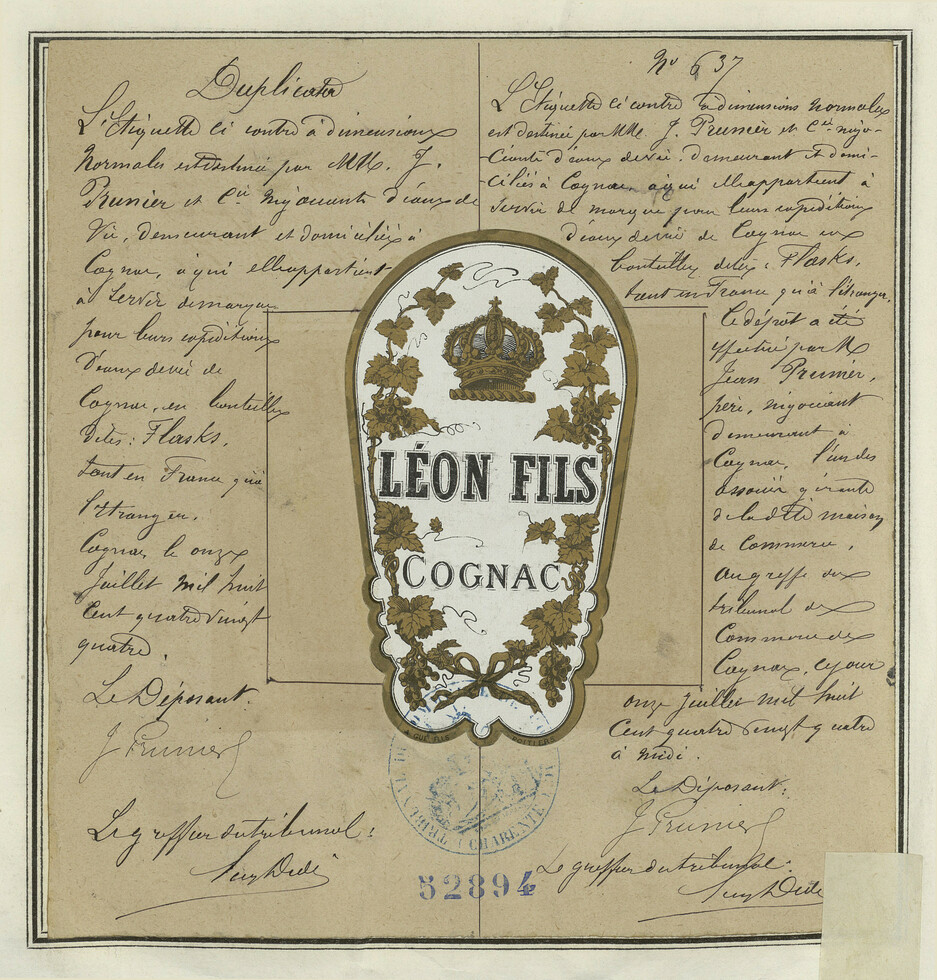 Duplicata
L'Etiquette ci contre à dimensions
Normales est destinée par MM. J.
Prunier et Cie Négociants d'eaux de
Vie, demeurant et domiciliés à
Cognac, à qui elle appartient
à servir de marque
pour leurs expéditions
d'eaux de vie de
Cognac, en bouteilles
dites: Flasks,
tant en France qu'à
l'étranger.
Cognac le onze
Juillet mil huit
cent quatre vingt
quatre.
Le Déposant.
J Prunier
Le greffier du tribunal:
No 637
L'Etiquette ci contre à dimensions normales
est destinée par MM. J. Prunier et Cie négo-
-ciants d'eaux de vie. demeurant et domi-
-ciliés à Cognac, à qui elle appartient à
servir de marque pour leurs expéditions
d'eaux de vie de Cognac en
bouteilles dites: Flasks,
tant en France qu'à l'étranger.
Le dépôt a été
effectué par M
Jean Prunier,
père, négociant
demeurant à
Cognac, l'un des
associés gérants
de la dite maison
de Commerce,
au greffe du
tribunal de
Commerce de
Cognac, ce jour
onze Juillet mil huit
cent quatre vingt quatre
à midi.
Le Déposant:
J Prunier
Le greffier du tribunal:
LÉON FILS
COGNAC
POITIERS
TRIBUNAL DE
CHARENTE
52894